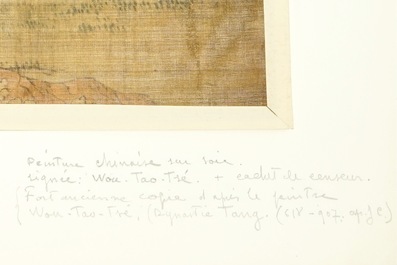 Peinture chinoise sur soie.
signée: Wou-Tao-Tsé. + cachet de censeur.
Fort ancienne copie d'après le peintre
Wou-Tao-Tsé, (Dynastie Tang. (618-907. ap. JC)